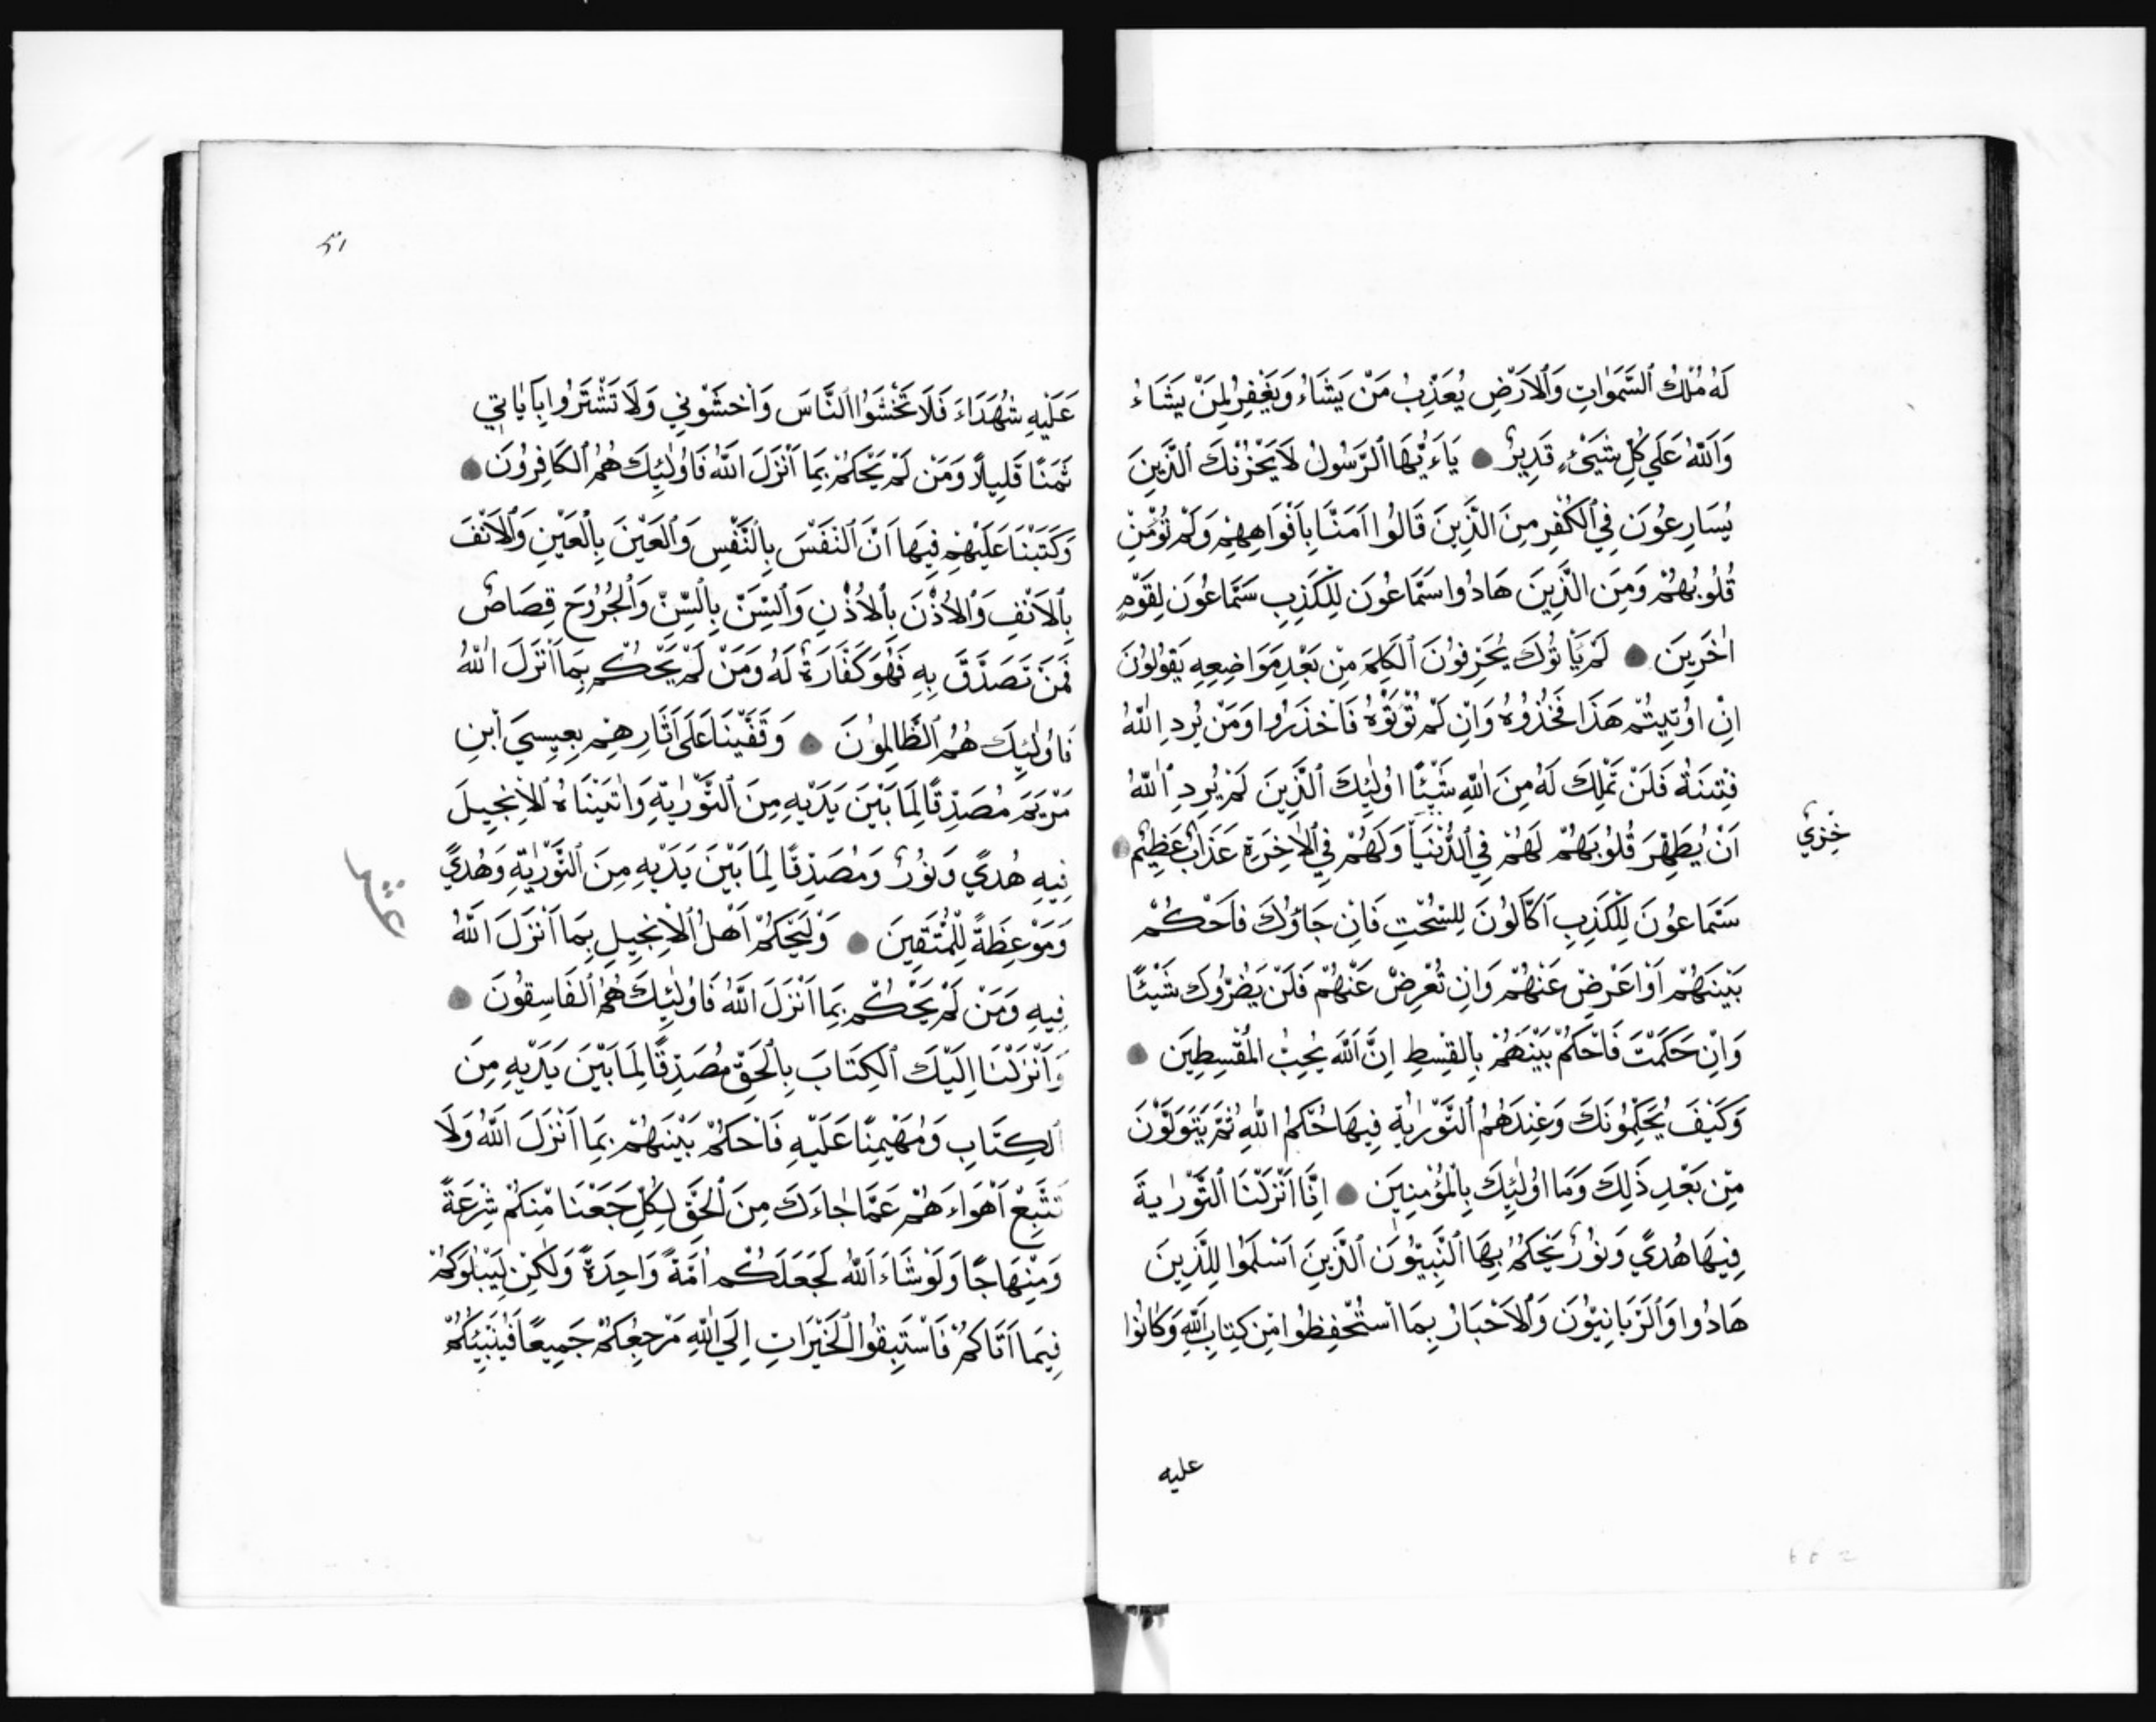 لَهُ مُلْكُ ٱلسَّمٰوَاتِ وَٱلْاَرْضِ يُعَذِّبُ مَنْ يَشَاءُ وَيَغْفِرُ لِمَنْ يَشَاءُ
وَٱللّٰهُ عَلَي كُلِّ شَيْىءٍ قَدِيرٌ ● يَاءَيُّهَا ٱلرَّسُولُ لَايَحْزُنْكَ ٱلَّذِينَ
يُسَارِعُونَ فِي ٱلْكُفْرِ مِنَ الَّذِينَ قَالُوا اٰمَنَّا بِاَفْوَاهِهِمْ وَلَمْ تُؤْمِنْ
قُلُوبُهُمْ وَمِنَ الَّذِينَ هَادُوا سَمَّاعُونَ لِلْكَذِبِ سَمَّاعُونَ لِقَوْمٍ
اٰخَرِينَ ● لَمْ يَأْتُوكَ يُحَرِّفُونَ ٱلْكَلِمَ مِنْ بَعْدِ مَوَاضِعِهِ يَقُولُونَ
اِنْ اُوْتِيتُمْ هَذَا فَخُذُوهُ وَاِنْ لَمْ تُؤْتَوْهُ فَاْحْذَرُوا وَمَنْ يُرِدِ اللّٰهُ
فِتْنَتَهُ فَلَنْ تَمْلِكَ لَهُ مِنَ اللّٰهِ شَيْئًا اُولٰئِكَ ٱلَّذِينَ لَمْ يُرِدِ ٱللّٰهُ
خِزْيٌ
اَنْ يُطَهِّرَ قُلُوبَهُمْ لَهُمْ فِي ٱلدُّنْيَا وَلَهُمْ فِي ٱلْاٰخِرَةِ عَذَابٌ عَظِيْمٌ ●
سَمَّاعُونَ لِلْكَذِبِ اَكَّالُونَ لِلسُّحْتِ فَاِنْ جَاؤُكَ فَاْحْكُمْ
بَيْنَهُمْ اَوْ اَعْرِضْ عَنْهُمْ وَاِنْ تُعْرِضْ عَنْهُمْ فَلَنْ يَضُرُّوكَ شَيْئًا
وَاِنْ حَكَمْتَ فَاحْكُمْ بَيْنَهُمْ بِالْقِسْطِ اِنَّ اللّٰهَ يُحِبُّ الْمُقْسِطِينَ ●
وَكَيْفَ يُحَكِّمُونَكَ وَعِنْدَهُمُ ٱلتَّوْرٰيةُ فِيهَا حُكْمُ اللّٰهِ ثُمَّ يَتَوَلَّوْنَ
مِنْ بَعْدِ ذَلِكَ وَمَا اُولٰئِكَ بِالْمُؤْمِنِينَ ● اِنَّا اَنْزَلْنَا ٱلتَّوْرٰيةَ
فِيهَا هُدًي وَنُورٌ يَحْكُمُ بِهَا ٱلنَّبِيُّونَ ٱلَّذِينَ اَسْلَمُوا لِلَّذِينَ
هَادُوا وَٱلرَّبَّانِيُّونَ وَٱلْاَحْبَارُ بِمَا اسْتُحْفِظُوا مِنْ كِتَابِ اللّٰهِ وَكَانُوا
عليه
٥١
عَلَيْهِ شُهَدَاءَ فَلَا تَخْشَوُا ٱلنَّاسَ وَاْخْشَوْنِي وَلَا تَشْتَرُوا بِاٰيَاتِي
ثَمَنًا قَلِيلًا وَمَنْ لَمْ يَحْكُمْ بِمَا اَنْزَلَ اللّٰهُ فَاُولٰئِكَ هُمُ ٱلْكَافِرُونَ ●
وَكَتَبْنَا عَلَيْهِمْ فِيهَا اَنَّ ٱلنَّفْسَ بِالنَّفْسِ وَٱلْعَيْنَ بِالْعَيْنِ وَٱلْاَنْفَ
بِٱلْاَنْفِ وَٱلْاُذْنَ بِٱلْاُذْنِ وَٱلسِّنَّ بِالسِّنِّ وَٱلْجُرُوحَ قِصَاصٌ
فَمَنْ تَصَدَّقَ بِهِ فَهُوَ كَفَّارَةٌ لَهُ وَمَنْ لَمْ يَحْكُمْ بِمَا اَنْزَلَ اللّٰهُ
فَاُولٰئِكَ هُمُ ٱلظَّالِمُونَ ● وَقَفَّيْنَا عَلَي اٰثَارِهِمْ بِعِيسَي اْبنِ
مَرْيَمَ مُصَدِّقًا لِمَا بَيْنَ يَدَيْهِ مِنَ ٱلتَّوْرٰيةِ وَاٰتَيْنَاهُ ٱلْاِنْجِيلَ
فِيهِ هُدًي وَنُورٌ وَمُصَدِّقًا لِمَا بَيْنَ يَدَيْهِ مِنَ ٱلتَّوْرٰيةِ وَهُدًي
عشر
وَمَوْعِظَةً لِلْمُتَّقِينَ ● وَلْيَحْكُمْ اَهْلُ ٱلْاِنْجِيلِ بِمَا اَنْزَلَ اللّٰهُ
فِيهِ وَمَنْ لَمْ يَحْكُمْ بِمَا اَنْزَلَ اللّٰهُ فَاُولٰئِكَ هُمُ ٱلْفَاسِقُونَ ●
وَاَنْزَلْنَا اِلَيْكَ ٱلْكِتَابَ بِالْحَقِّ مُصَدِّقًا لِمَا بَيْنَ يَدَيْهِ مِنَ
ٱلْكِتَابِ وَمُهَيْمِنًا عَلَيْهِ فَاحْكُمْ بَيْنَهُمْ بِمَا اَنْزَلَ اللّٰهُ وَلَا
تَتَّبِعْ اَهْوَاءَهُمْ عَمَّا جَاءَكَ مِنَ ٱلْحَقِّ لِكُلٍّ جَعَلْنَا مِنْكُمْ شِرْعَةً
وَمِنْهَاجًا وَلَوْ شَاءَ اللّٰهُ لَجَعَلَكُمْ اُمَّةً وَاحِدَةً وَلٰكِنْ لِيَبْلُوَكُمْ
فِيمَا اٰتَاكُمْ فَاسْتَبِقُوا ٱلْخَيْرَاتِ اِلَي اللّٰهِ مَرْجِعُكُمْ جَمِيعًا فَيُنَبِّئُكُمْ